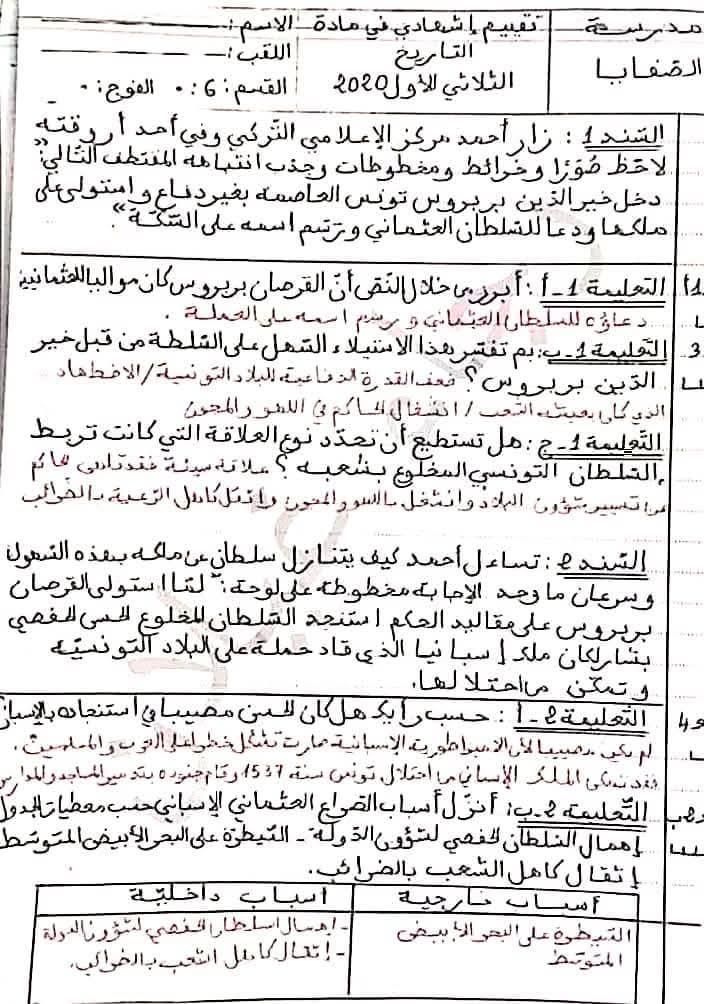 مدرسة
الصفايا
تقييم إشهادي في مادة
التاريخ
الثلاثي الأول 2020
الاسم:
اللقب:
القسم: 6 الفوج:
السند 1: زار أحمد مركز الإعلامي التركي وفي أحد أروقته
لاحظ صورا وخرائط ومخطوطات وجذب انتباهه المقتطف التالي: "
دخل خير الدين بربروس تونس العاصمة بغير دفاع واستولى على
ملكها ودعا للسلطان العثماني ورسم اسمه على السكة".
التعليمة 1-أ: أبرز من خلال النص أن القرصان بربروس كان مواليا للعثمانيين
دعاؤه للسلطان العثماني ورسم اسمه على العملة.
التعليمة 1-ب: بم تفسر هذا الاستيلاء السهل على السلطة من قبل خير
الدين بربروس؟ ضعف القدرة الدفاعية للبلاد التونسية / الاضطهاد
الذي كان يعيشه الشعب / انشغال الحاكم في اللهو والمجون
التعليمة 1-ج: هل تستطيع أن تحدد نوع العلاقة التي كانت تربط
السلطان التونسي المخلوع بشعبه؟ علاقة سيئة فقد تخلى الحاكم
عن تسيير شؤون البلاد وانشغل باللهو والمجون وأثقل كاهل الرعية بالضرائب
السند 2: تساءل أحمد كيف يتنازل سلطان عن ملكه بهذه السهولة
وسرعان ما وجد الإجابة مخطوطة على لوحة: "لما استولى القرصان
بربروس على مقاليد الحكم استنجد السلطان المخلوع الحسن الحفصي
بشارلكان ملك إسبانيا الذي قاد حملة على البلاد التونسية
وتمكن من احتلالها.
التعليمة 2-أ: حسب رأيك هل كان الحسن مصيبا في استنجاده بالإسبان
لم يكن مصيبا لأن الامبراطورية الإسبانية صارت تشكل خطرا على العرب والمسلمين.
فقد تمكن الملك الإسباني من احتلال تونس سنة 1537 وقام جنوده بتدمير المساجد والمدارس
التعليمة 2-ب: أنزل أسباب الصراع العثماني الإسباني حسب معطيات الجدول
إهمال السلطان الحفصي لشؤون الدولة - السيطرة على البحر الأبيض المتوسط
إثقال كاهل الشعب بالضرائب.
أسباب خارجية
أسباب داخلية
السيطرة على البحر الأبيض
المتوسط
- إهمال السلطان الحفصي لشؤون الدولة
- إثقال كاهل الشعب بالضرائب.